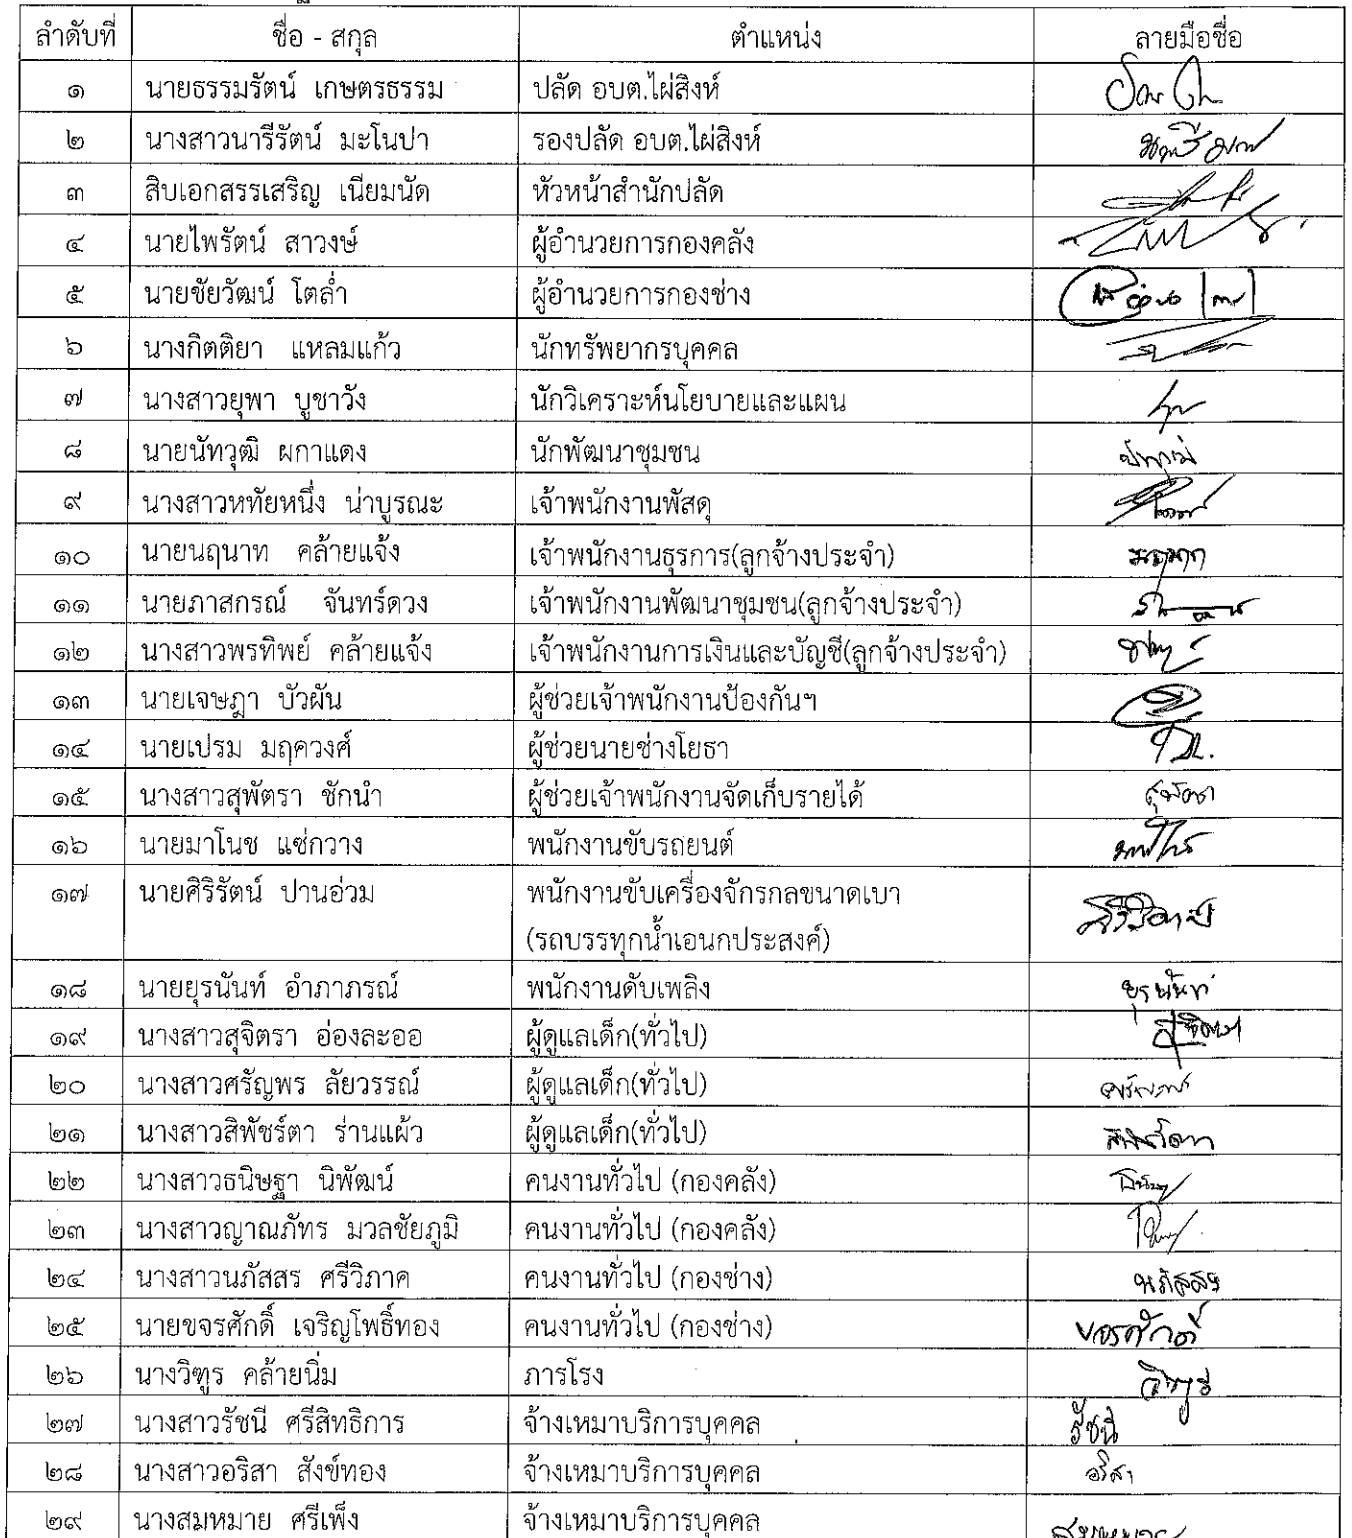 ลำดับที่ ชื่อ - สกุล ตำแหน่ง ลายมือชื่อ
๑ นายธรรมรัตน์ เกษตรธรรม ปลัด อบต.ไผ่สิงห์
๒ นางสาวนารีรัตน์ มะโนปา รองปลัด อบต.ไผ่สิงห์
๓ สิบเอกสรรเสริญ เนียมนัด หัวหน้าสำนักปลัด
๔ นายไพรัตน์ สาวงษ์ ผู้อำนวยการกองคลัง
๕ นายชัยวัฒน์ โตล่ำ ผู้อำนวยการกองช่าง
๖ นางกิตติยา แหลมแก้ว นักทรัพยากรบุคคล
๗ นางสาวยุพา บูชาวัง นักวิเคราะห์นโยบายและแผน
๘ นายนัทวุฒิ ผกาแดง นักพัฒนาชุมชน
๙ นางสาวหทัยหนึ่ง น่าบูรณะ เจ้าพนักงานพัสดุ
๑๐ นายนฤนาท คล้ายแจ้ง เจ้าพนักงานธุรการ(ลูกจ้างประจำ)
๑๑ นายภาสกรณ์ จันทร์ดวง เจ้าพนักงานพัฒนาชุมชน(ลูกจ้างประจำ)
๑๒ นางสาวพรทิพย์ คล้ายแจ้ง เจ้าพนักงานการเงินและบัญชี(ลูกจ้างประจำ)
๑๓ นายเจษฎา บัวผัน ผู้ช่วยเจ้าพนักงานป้องกันฯ
๑๔ นายเปรม มฤควงศ์ ผู้ช่วยนายช่างโยธา
๑๕ นางสาวสุพัตรา ชักนำ ผู้ช่วยเจ้าพนักงานจัดเก็บรายได้ สุพัตรา
๑๖ นายมาโนช แซ่กวาง พนักงานขับรถยนต์
๑๗ นายศิริรัตน์ ปานอ่วม พนักงานขับเครื่องจักรกลขนาดเบา
(รถบรรทุกน้ำเอนกประสงค์)
๑๘ นายยุรนันท์ อำภาภรณ์ พนักงานดับเพลิง ยุรนันท์
๑๙ นางสาวสุจิตรา อ่องละออ ผู้ดูแลเด็ก(ทั่วไป) สุจิตรา
๒๐ นางสาวศรัญพร ลัยวรรณ์ ผู้ดูแลเด็ก(ทั่วไป)
๒๑ นางสาวสิพัชร์ตา ร่านแผ้ว ผู้ดูแลเด็ก(ทั่วไป)
๒๒ นางสาวธนิษฐา นิพัฒน์ คนงานทั่วไป (กองคลัง)
๒๓ นางสาวญาณภัทร มวลชัยภูมิ คนงานทั่วไป (กองคลัง)
๒๔ นางสาวนภัสสร ศรีวิภาค คนงานทั่วไป (กองช่าง) นภัสสร
๒๕ นายขจรศักดิ์ เจริญโพธิ์ทอง คนงานทั่วไป (กองช่าง) ขจรศักดิ์
๒๖ นางวิฑูร คล้ายนิ่ม ภารโรง วิฑูร
๒๗ นางสาวรัชนี ศรีสิทธิการ จ้างเหมาบริการบุคคล รัชนี
๒๘ นางสาวอริสา สังข์ทอง จ้างเหมาบริการบุคคล อริสา
๒๙ นางสมหมาย ศรีเพ็ง จ้างเหมาบริการบุคคล